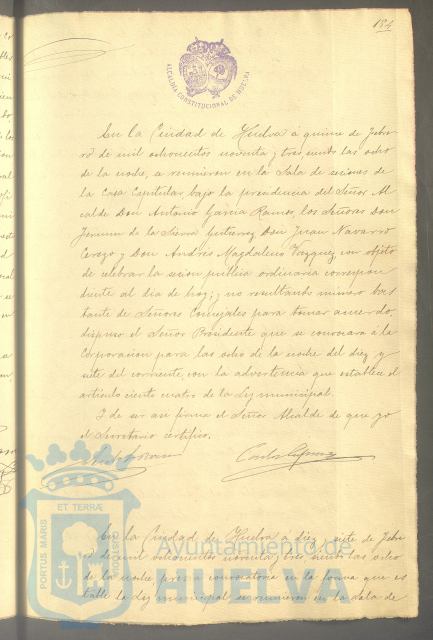 184
ALCALDIA CONSTITUCIONAL DE HUELVA
En la Ciudad de Huelva á quince de Febre
ro de mil ochocientos noventa y tres siendo las ocho
de la noche, se reunieron en la Sala de sesiones de
la Casa Capitular bajo la presidencia del Señor Al
calde Don Antonio Garcia Ramos, los Señores Don
de la Sierra Gutierrez Don Juan Navarro
Cerezo y Don Andrés Magdaleno Vazquez con objeto
de celebrar la sesion publica ordinaria correspon
diente al dia de hoy; y no resultando número bas
tante de Señores Concejales para tomar acuerdo
dispuso el Señor Presidente que se convocara á la
Corporacion para las ocho de la noche del diez y
siete del corriente, con la advertencia que establece el
artículo ciento cuatro de la Ley municipal.
Y de ser asi firma el Señor Alcalde de que yo
el Secretario certifico.
En la Ciudad de Huelva á diez y siete de Febre
ro de mil ochocientos noventa y tres, siendo las ocho
de la noche, previa convocatoria en la forma que es
tablece la Ley municipal se reunieron en la Sala de
PORTUS MARIS ET TERRÆ CUSTODIA
Ayuntamiento de
HUELVA